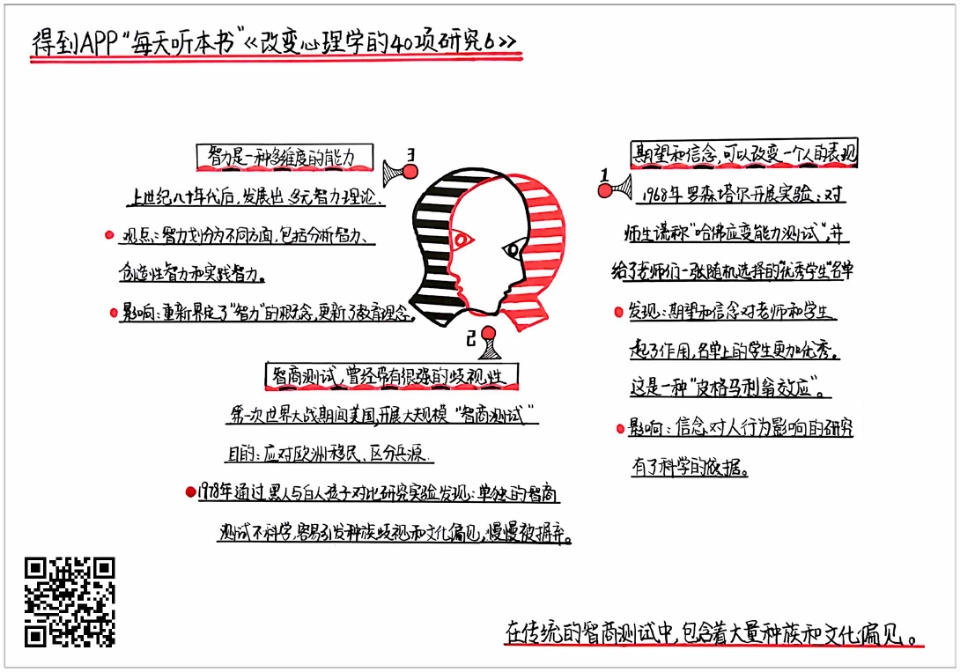 得到APP“每天听本书”《改变心理学的40项研究6》
1
期望和信念,可以改变一个人的表现
1968年罗森塔尔开展实验:对
师生谎称“哈佛应变能力测试”,并
给了老师们一张随机选择的“优秀学生”名单
发现:期望和信念对老师和学生
起了作用,名单上的学生更加优秀。
这是一种“皮格马利翁效应”。
影响:信念对人行为影响的研究
有了科学的依据。
2
智商测试,曾经带有很强的歧视性
第一次世界大战期间美国,开展大规模“智商测试”
目的:应对欧洲移民、区分兵源.
1978年通过黑人与白人孩子对比研究实验发现:单独的智商
测试不科学,容易引发种族歧视和文化偏见,慢慢被摒弃。
3
智力是一种多维度的能力
上世纪八十年代后,发展出“多元智力”理论、
观点:智力划分为不同方面,包括分析智力、
创造性智力和实践智力。
影响:重新界定了“智力”的概念,更新了教育理念。
在传统的智商测试中,包含着大量种族和文化偏见。